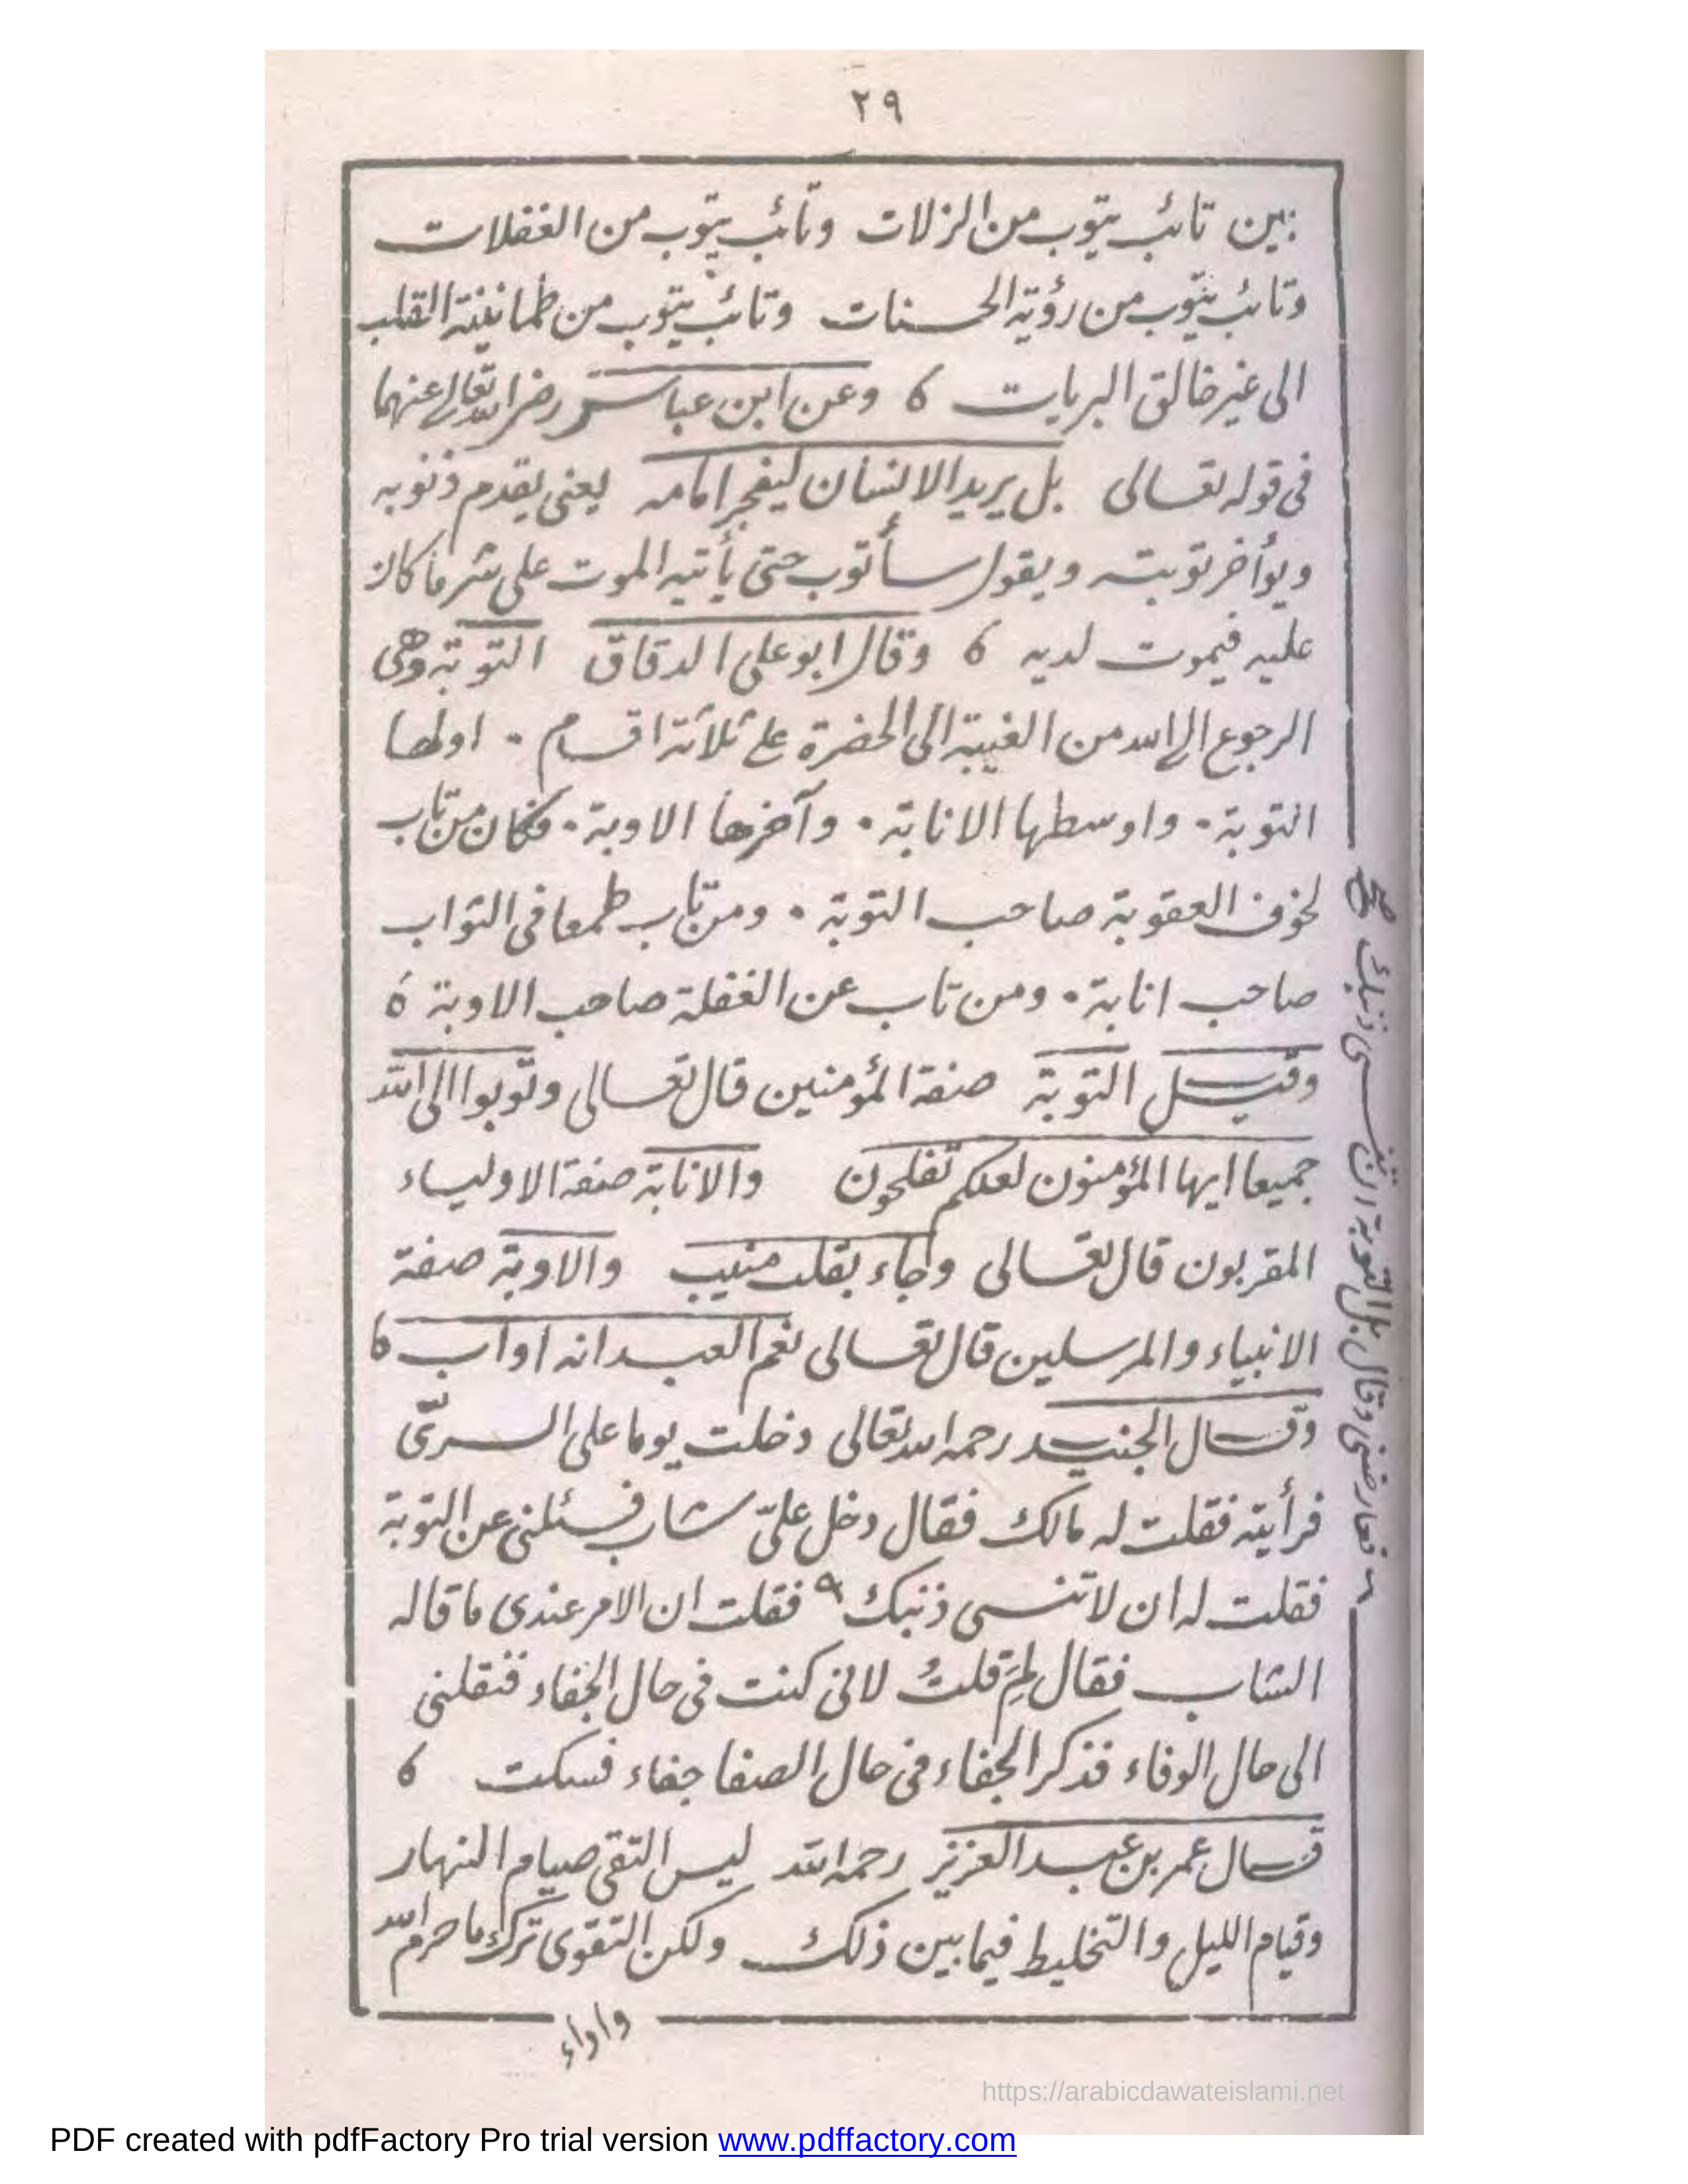 ٢٩
بين تائب يتوب من الزلات وتائب يتوب من الغفلات
وتائب يتوب من رؤية الحسنات وتائب يتوب من طمانينة القلب
الى غير خالق البريات ٥ وعن ابن عباس رضى الله تعالى عنهما
فى قوله تعالى بل يريد الانسان ليفجر امامه يعنى يقدم ذنوبه
ويؤخر توبته ويقول سأتوب حتى يأتيه الموت على شر ما كان
عليه فيموت لديه ٥ وقال ابو على الدقاق التوبة وهى
الرجوع الى الله من الغيبة الى الحضرة على ثلاثة اقسام . اولها
التوبة . واوسطها الانابة . وآخرها الاوبة . فكان من تاب
لخوف العقوبة صاحب التوبة . ومن تاب طمعا فى الثواب
صاحب انابة . ومن تاب عن الغفلة صاحب الاوبة ٥
وقيل التوبة صفة المؤمنين قال تعالى وتوبوا الى الله
جميعا ايها المؤمنون لعلكم تفلحون والانابة صفة الاولياء
المقربون قال تعالى وجاء بقلب منيب والاوبة صفة
الانبياء والمرسلين قال تعالى نعم العبد انه اواب ٥
وقال الجنيد رحمه الله تعالى دخلت يوما على السرىّ
فرأيته فقلت له مالك فقال دخل علىّ شاب فسئلنى عن التوبة
فقلت له ان لا تنسى ذنبك ٩ فقلت ان الامر عندى ما قاله
الشاب فقال لِمَ قلتُ لانى كنت فى حال الجفاء فنقلنى
الى حال الوفاء فذكر الجفاء فى حال الصفا جفاء فسكت ٥
قال عمر بن عبد العزيز رحمه الله ليس التقى صيام النهار
وقيام الليل والتخليط فيما بين ذلك ولكن التقوى ترك ما حرم الله
واداء
فعارضنى وقال بل التوبة ان تنسى ذنبك صح
https://arabicdawateislami.net
PDF created with pdfFactory Pro trial version www.pdffactory.com